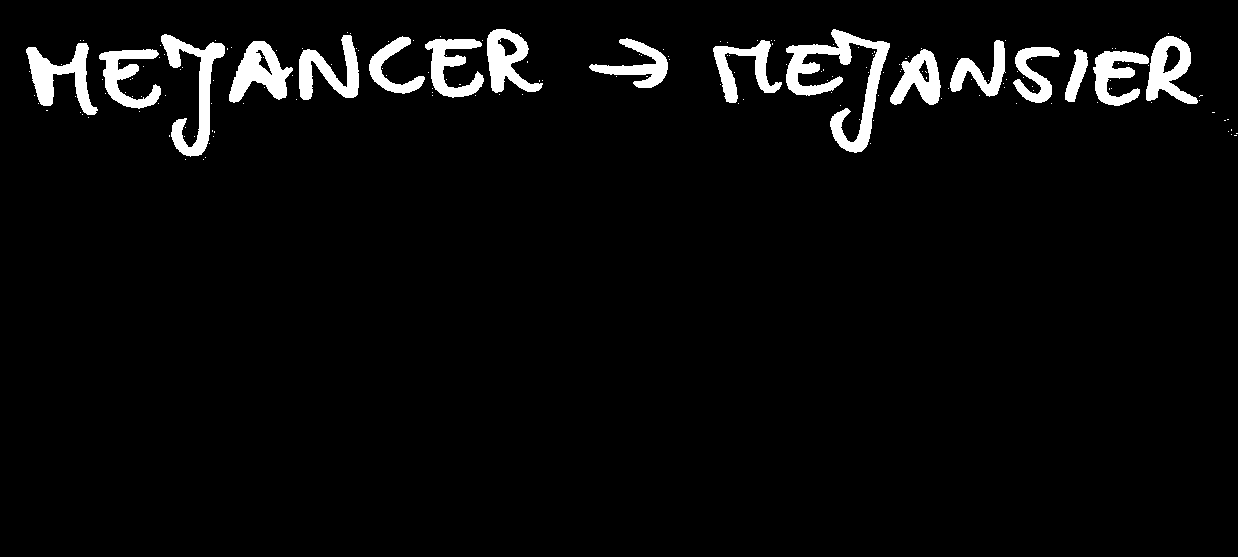 MEJANCER → MEJANSIER